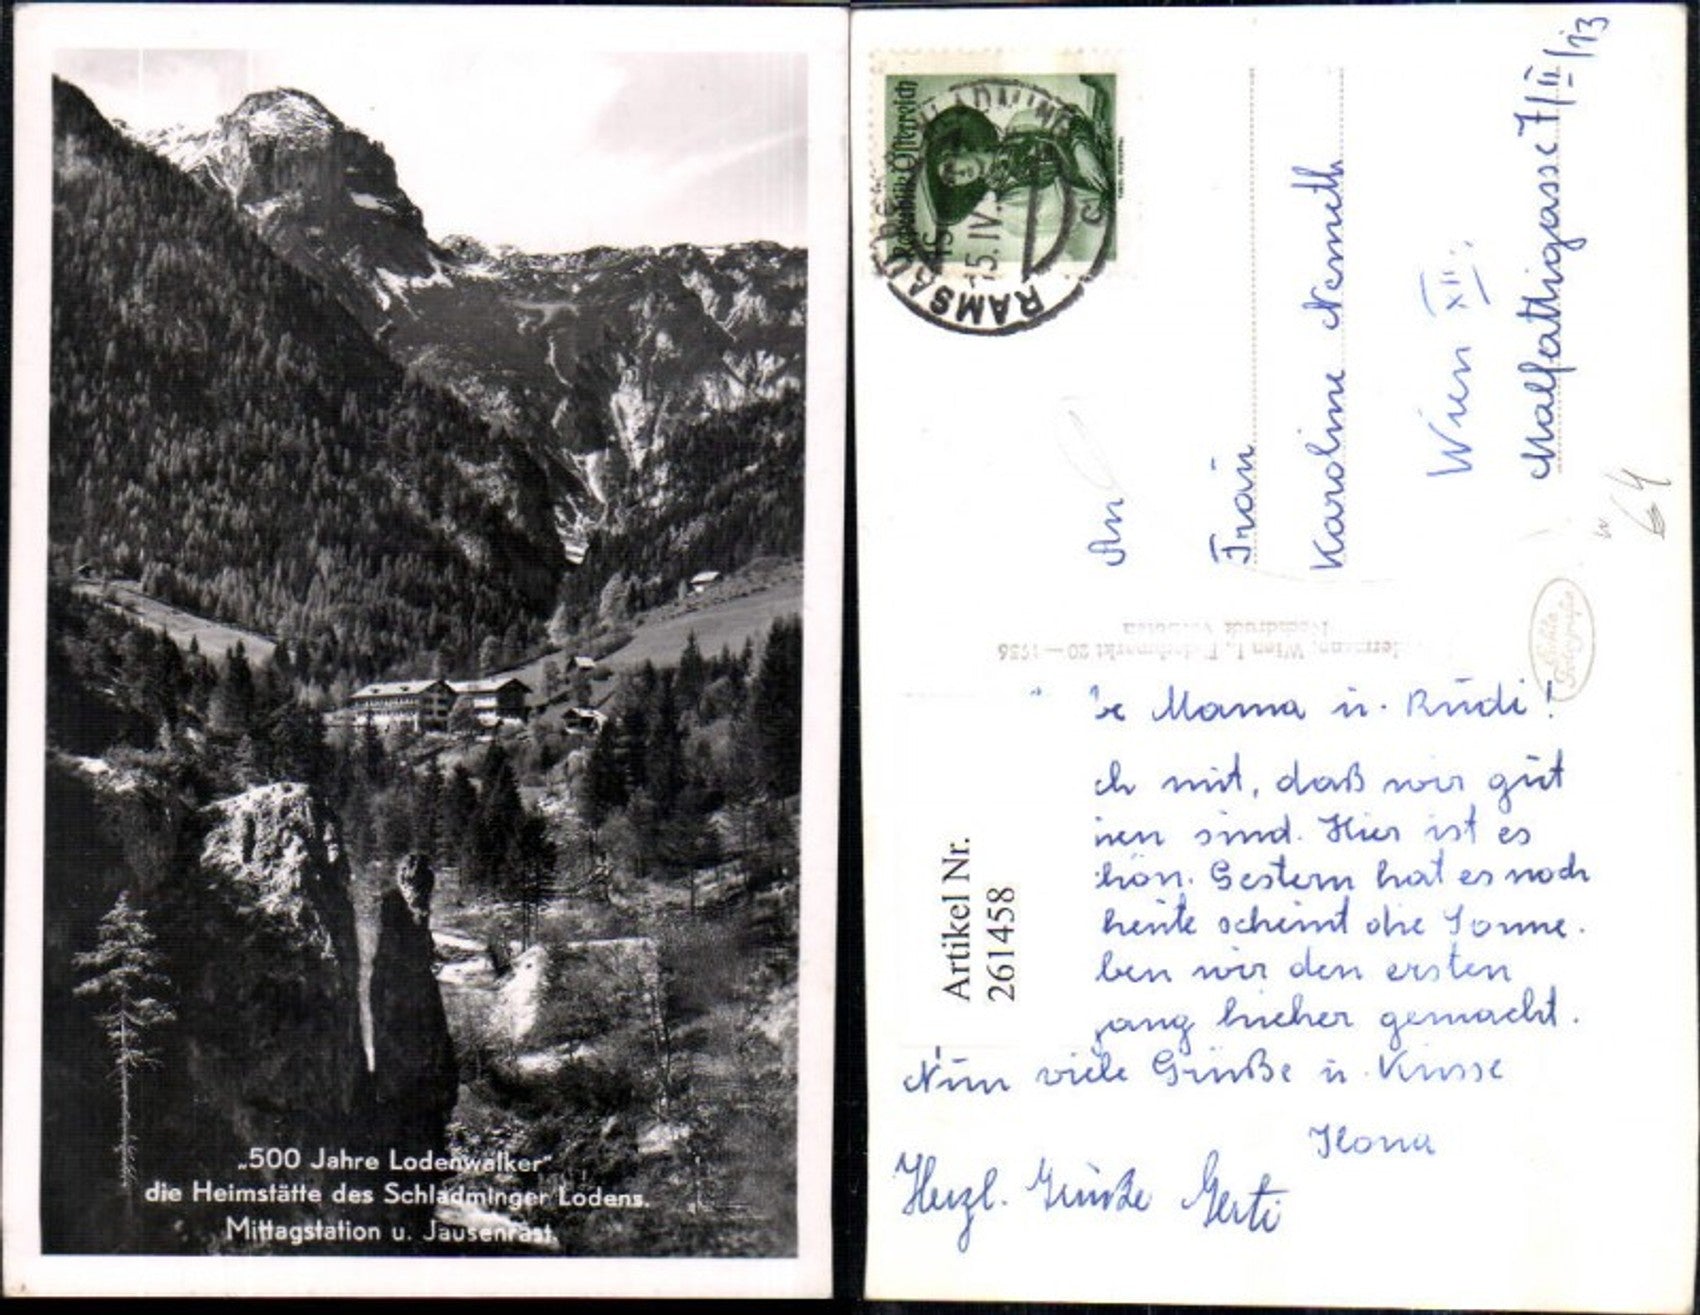 „500 Jahre Lodenwalker“
die Heimstätte des Schladminger Lodens.
Mittagstation u. Jausenrast.
Republik Österreich
RAMSAU
15. IV.
An
Frau
Karoline Nemeth
Wien XII.
Malfattigasse 7/II/13
64
Wien I., 20—1956
Nachdruck verboten
Echte
Fotografie
Artikel Nr.
261458
be Mama u. Rudi!
ch mit, daß wir gut
nen sind. Hier ist es
hön. Gestern hat es noch
heute scheint die Sonne.
ben wir den ersten
gang hieher gemacht.
Nun viele Grüße u. Küsse
Ilona
Herzl. Grüße Gerti